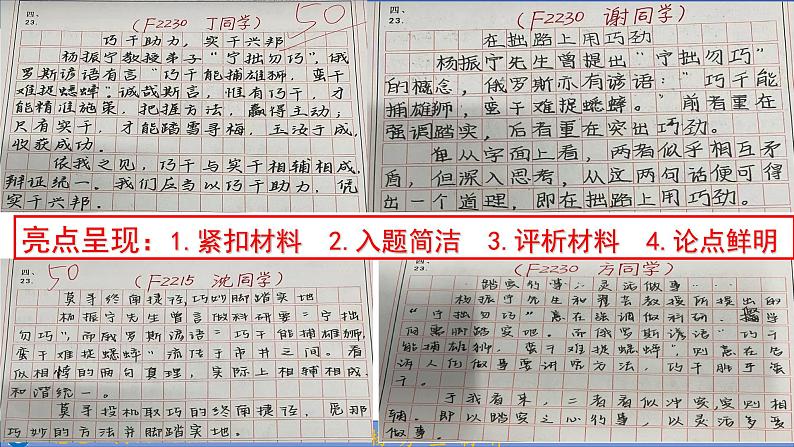 四、
23.
（F2230 丁同学）
50
巧干助力，实干兴邦
杨振宁教授弟子“宁拙勿巧”，俄
罗斯谚语有言“巧干能捕雄狮，蛮干
难捉蟋蟀。”诚哉斯言，惟有巧干，才
能精准施策，把握方法，赢得主动；
只有实干，才能踏雪寻梅，玉汝于成，
收获成功。
依我之见，巧干与实干相辅相成，
辩证统一。我们应当以巧干助力，凭
实干兴邦。
四、
23.
（F2230 谢同学）
在拙路上用巧劲
杨振宁先生曾提出“宁拙勿巧”
的概念，俄罗斯亦有谚语：“巧干能
捕雄狮，蛮干难捉蟋蟀。”前者重在
强调踏实，后者重在突出巧劲。
单从字面上看，两者似乎相互矛
盾，但深入思考，从这两句话便可得
出一个道理，即在拙路上用巧劲。
亮点呈现：1.紧扣材料 2.入题简洁 3.评析材料 4.论点鲜明
四、
23.
50
（F2215 沈同学）
莫寻终南捷径，巧妙脚踏实地
杨振宁先生曾言做科研要“宁拙
勿巧”，而俄罗斯谚语“巧干能捕雄狮，
蛮干难捉蟋蟀”流传于市井之间。看
似相悖的两句真理，实际上相辅相成，
和谐统一。
莫寻投机取巧的终南捷径，觅那
巧妙的方法并脚踏实地。
四、
23.
（F2230 方同学）
踏实行事，灵活做事
杨振宁先生和教授所提出的
“宁拙勿巧”意在强调做科研、
脚踏实地，而俄罗斯谚语“巧干
能捕雄狮，蛮干难捉蟋蟀”，则意在告
人们做事要讲究方法，巧干胜于蛮
干。
于我看来，二者看似冲突，实则相
辅。即以踏实之心行事，以灵活
做事。